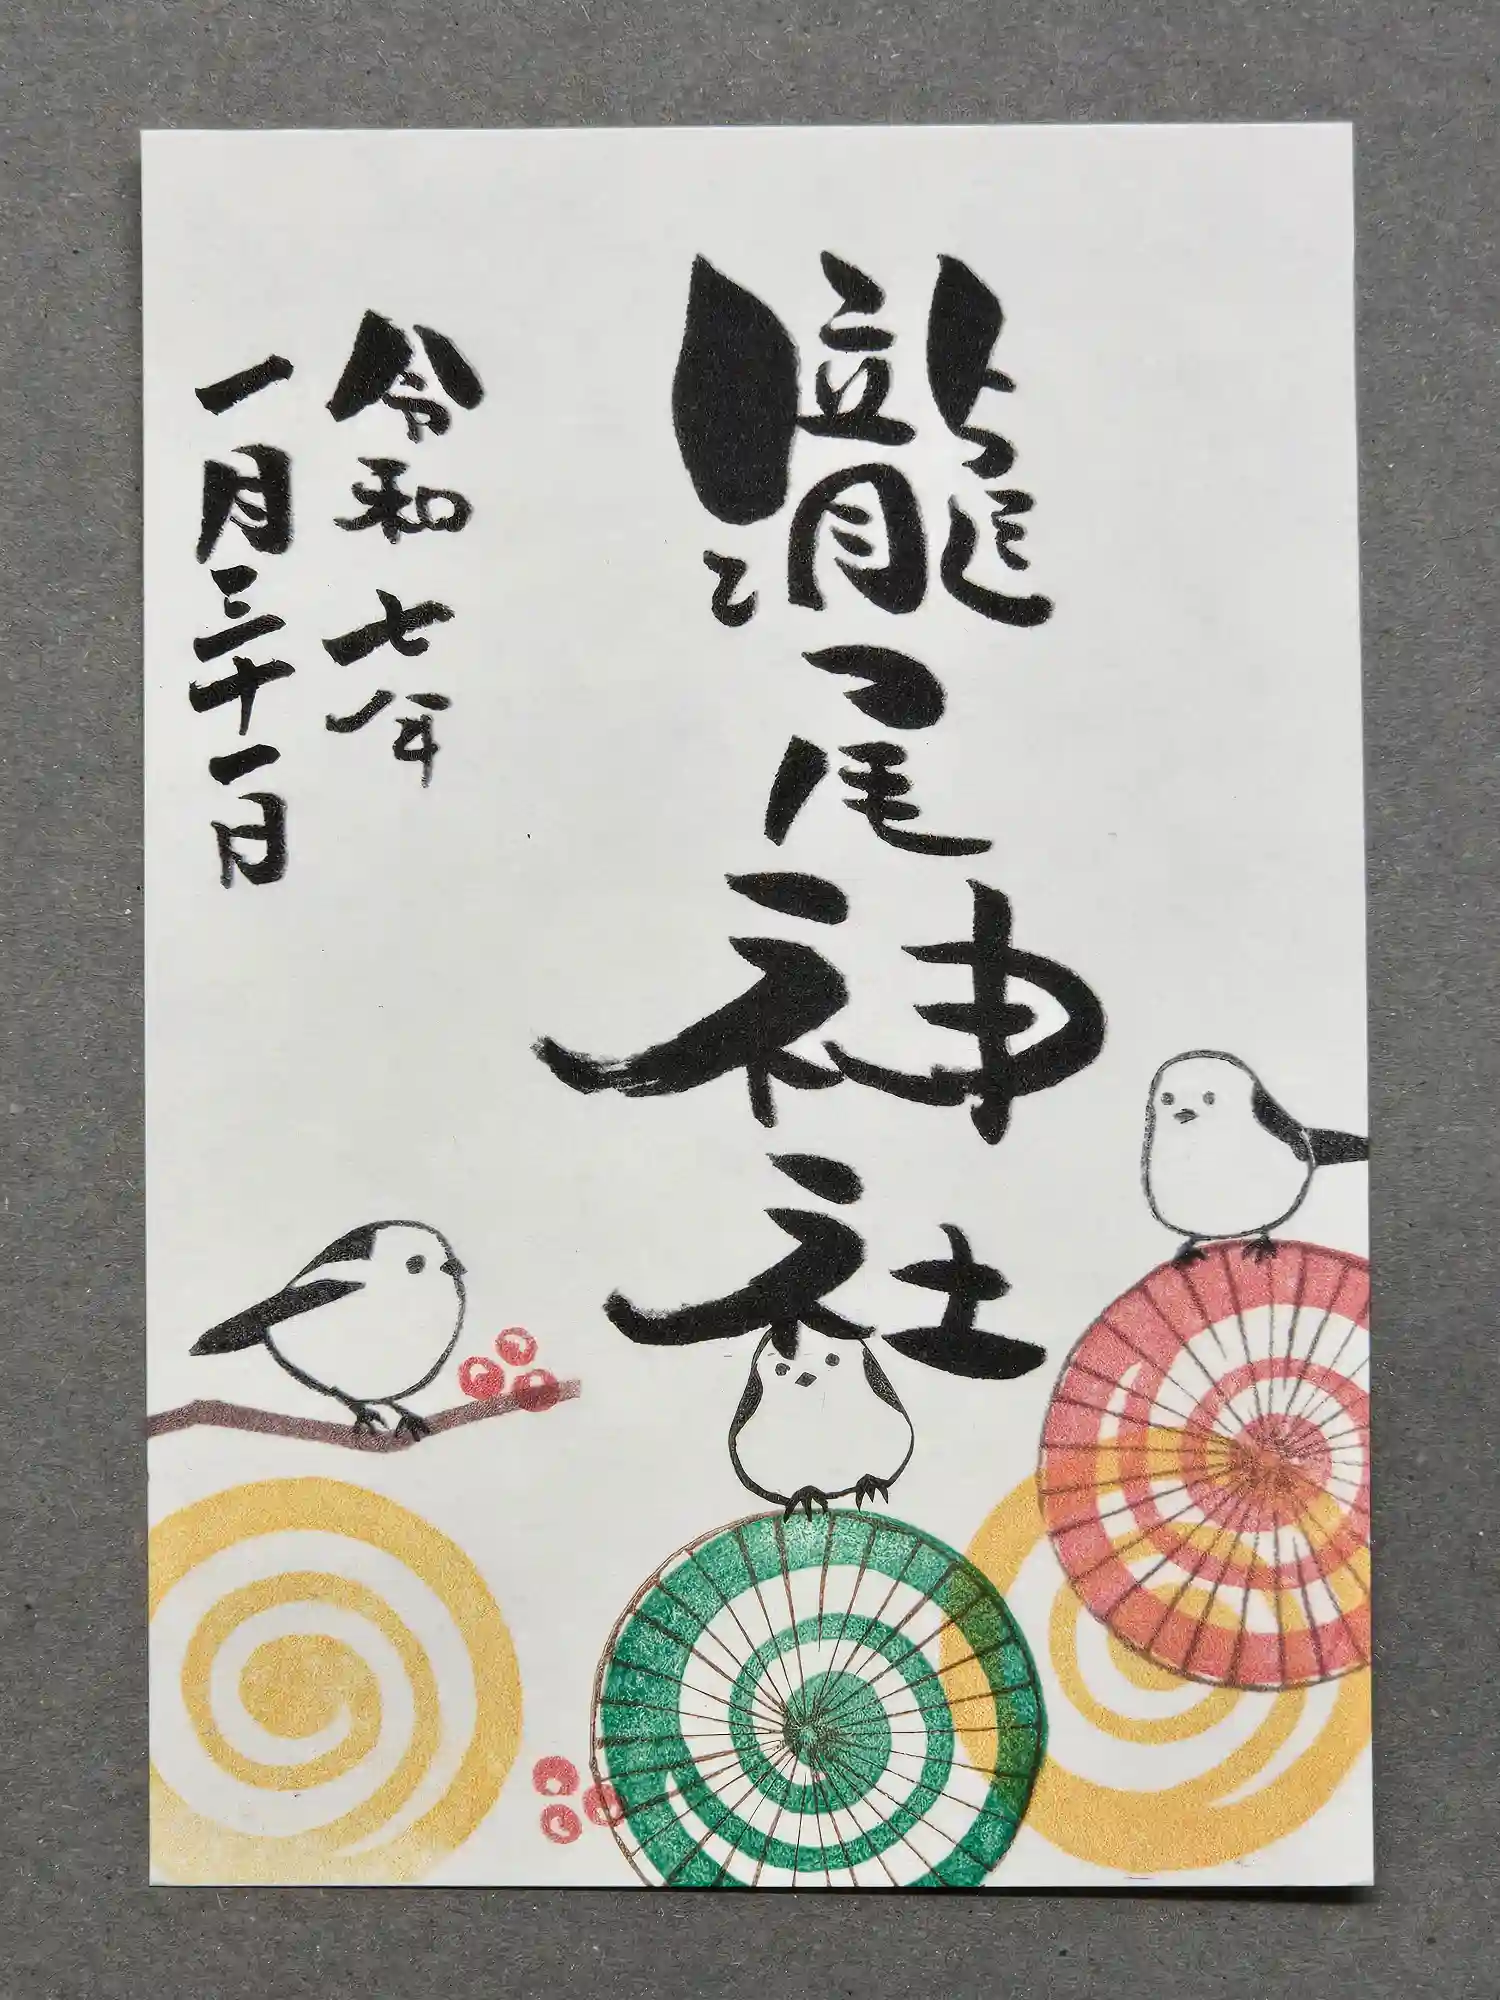 瀧尾神社
令和七年
一月三十一日